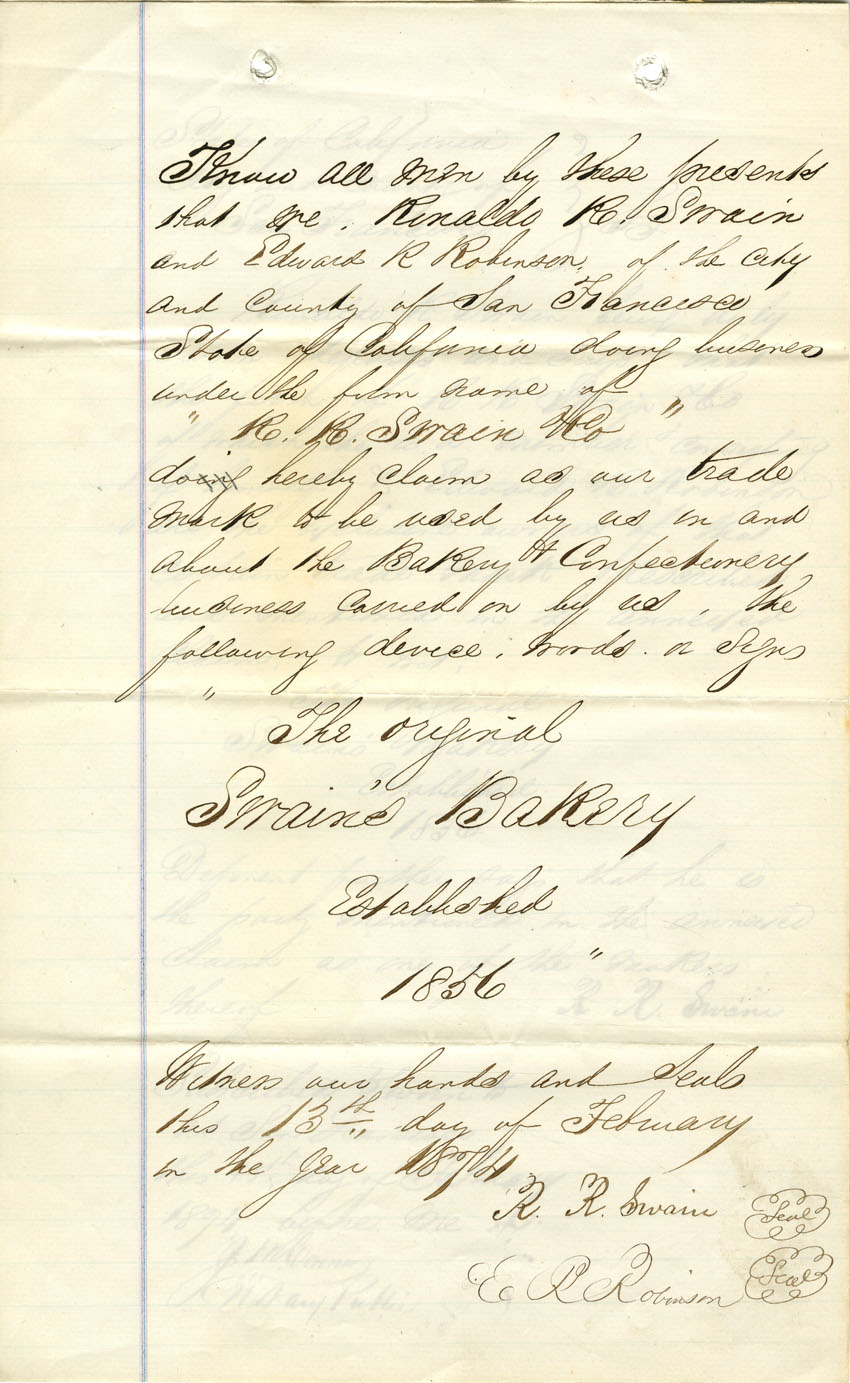 Know all men by these presents
that we, Rinaldo R. Swain
and Edward R Robinson, of the City
and County of San Francisco
State of California doing business
under the firm name of
" R. R. Swain & Co "
doing hereby claim as our trade
mark to be used by us in and
about the Bakery & Confectionery
business carried on by us, the
following device, words. or signs
"
The original
Swain's Bakery
Established
1856 "
Witness our hands and Seals
this 13th day of February
in the year 1874
R. R. Swain Seal
E R Robinson Seal